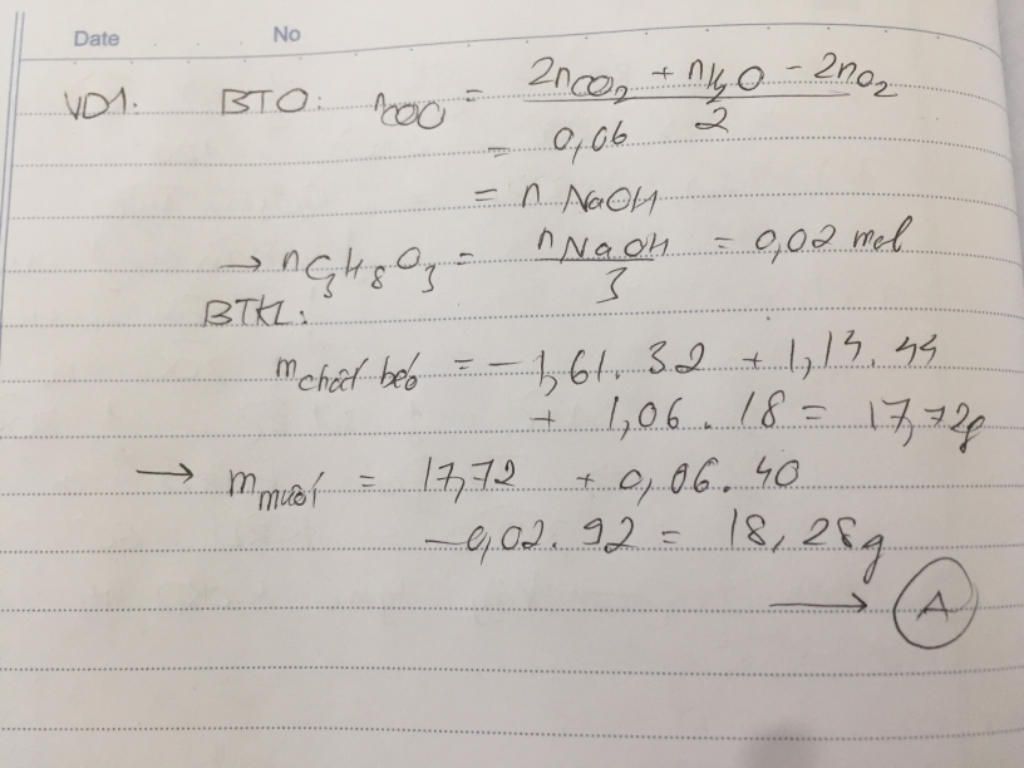 Date No
VD1: BTO: nCOO = (2nCO₂ + nH₂O - 2nO₂) / 2
= 0,06
= n NaOH
→ nC₃H₈O₃ = nNaOH / 3 = 0,02 mol
BTKL:
m chất béo = -1,61. 32 + 1,14. 44
+ 1,06. 18 = 17,72g
→ m muối = 17,72 + 0,06. 40
-0,02. 92 = 18,28g
→ A